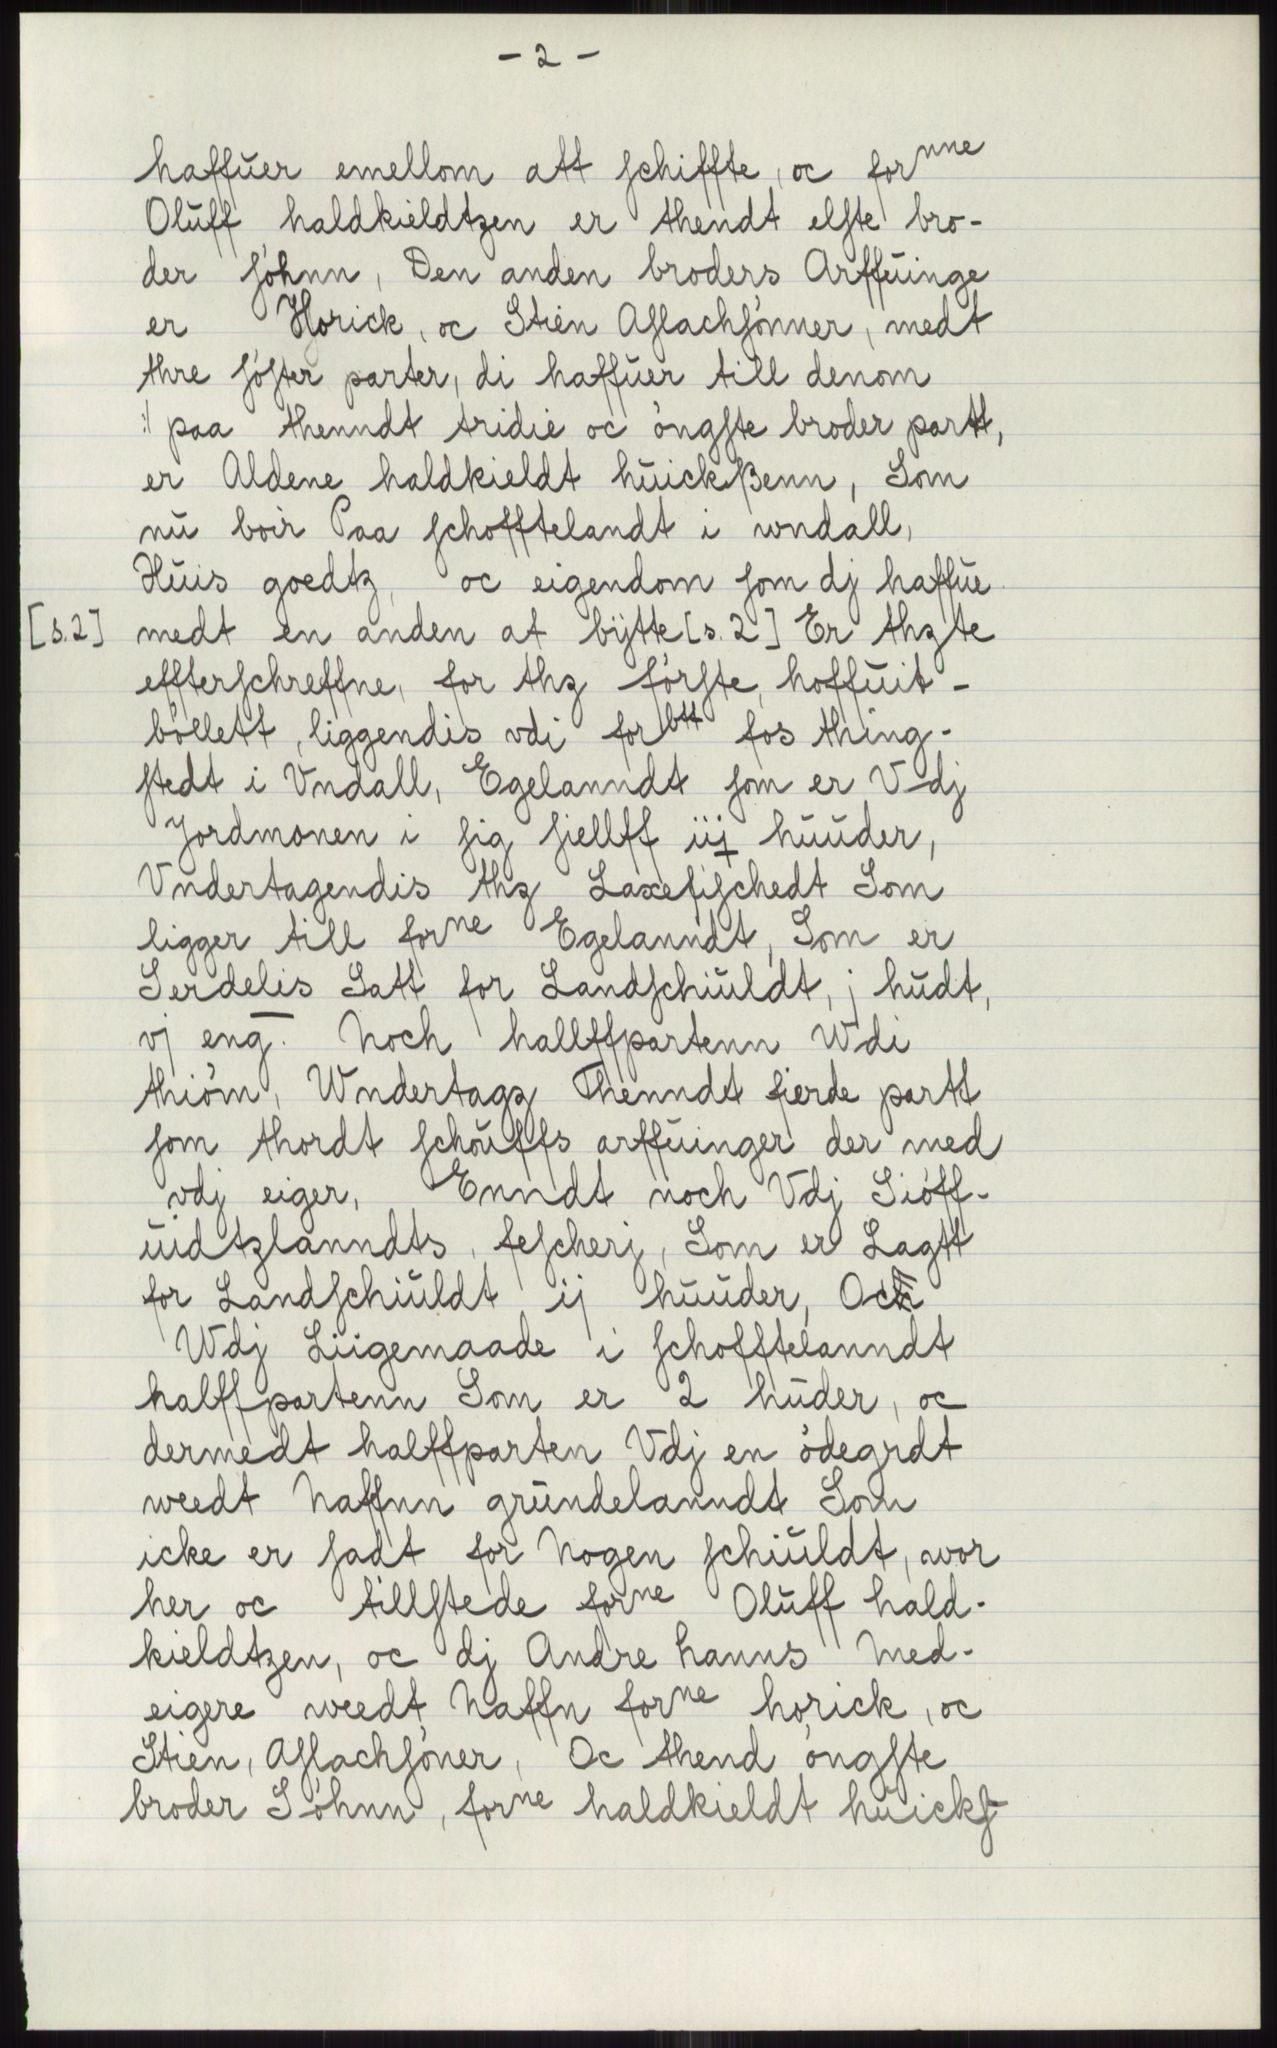 - 2 -
haffŭer emellom att ſchiffte, oc forⁿⁿᵉ
Olŭff haldkieldtzen er thendt elſte bro-
der ſóhnn, Den anden broders Arffŭinge
er Horick, oc Stien Aſlachſónner, medt
thre ſóſter parter, di haffŭer till denom
:/ paa thenndt tridie oc óngſte broder partt,
er Aldene haldkieldt hŭickßenn, Som
nŭ boir Paa ſchofftelandt i wndall,
Hŭis goedtz, oc eigendom ſom dj haffŭe
[s.2] medt en anden at bÿtte [s. 2] Er thzte
effterſchreffne, for thz fórſte, hoffŭit-
bóllett, liggendis vdi forᵇᵗᵗ fos thing-
ſtedt i Vndall, Egelanndt ſom er Vdj
Jordmonen i ſig ſiellff iij hŭŭder,
Vndertagendis thz Laxefiſchedt Som
ligger till forⁿᵉ Egelanndt, Som er
Serdelis Satt for Landſchŭldt, j hŭdt,
vj eng̅. Noch hallffpartenn Wdi
thióm, Wndertagz Thenndt fierde partt
ſom thordt ſchŏŭffs arffŭinger der med
vdj eiger, Enndt noch Vdj Sióff-
ŭidtzlanndts, feſcherj, Som er Lagtt
for Landſchiŭldt ij hŭŭder, Och
Wdj Liigemaade i ſchofftelanndt
halffpartenn Som er 2 hŭder, oc
dermedt halffparten Vdj en ódegrdt
weedt Naffnn grŭndelanndt Som
icke er ſadt for Nogen ſchiŭldt, wor
her oc tillſtede forⁿᵉ Olŭff hald-
kieldtzen, oc dj Andre hanns Med-
eigere weedt Naffn forⁿᵉ horick, oc
Stien, Aſlachſóner, Oc thend óngſte
broder Sóhnn, forⁿᵉ haldkieldt hŭickſ-